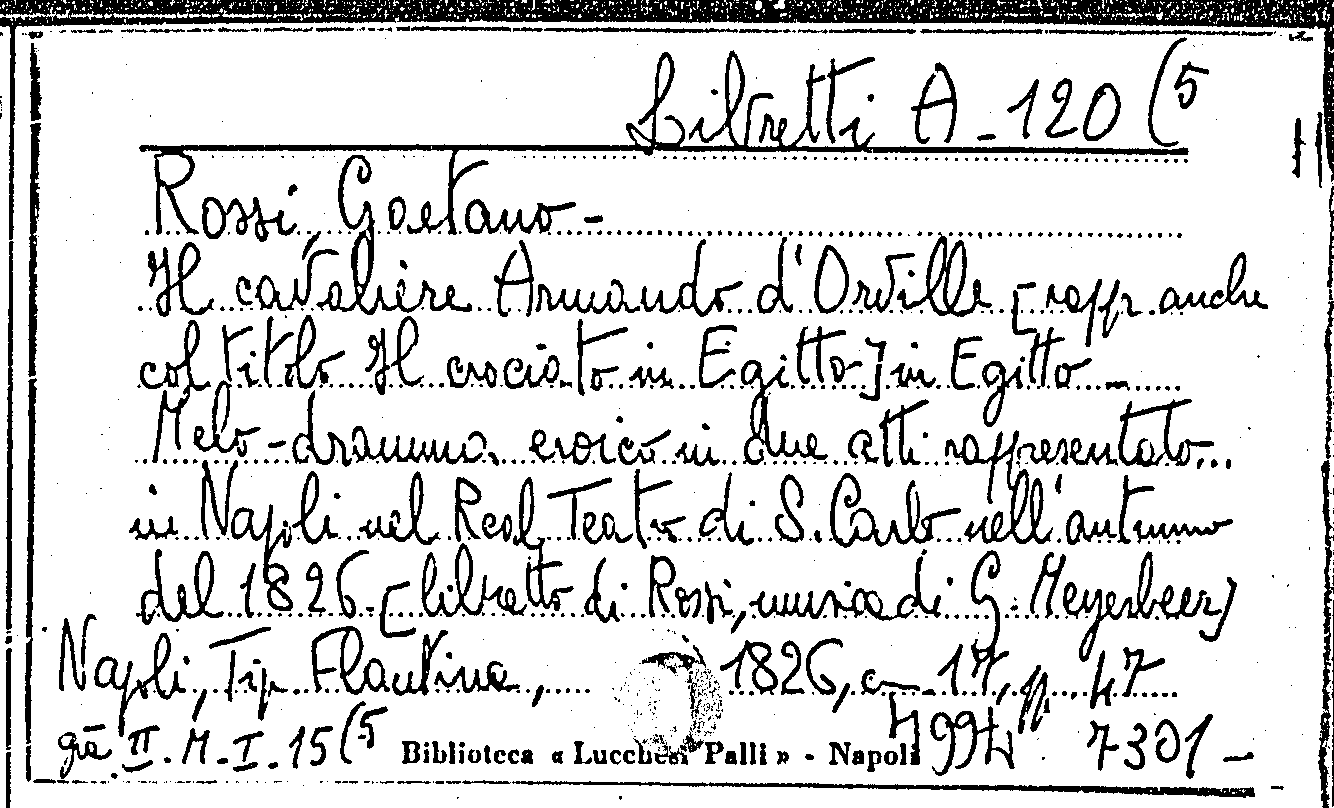 Libretti A - 120 (5
Rossi, Gaetano -
Il cavaliere Armando d'Orville [rappr. anche
col titolo Il crociato in Egitto] in Egitto -
Melo-dramma eroico in due atti rappresentato...
in Napoli nel Real Teatro di S. Carlo nell'autunno
del 1826. [libretto di Rossi, musica di G. Meyerbeer]
Napoli, Tip Flautina, 1826, cm. 17, pp. 47
già II. M. I. 15 (5 Biblioteca « Lucchesi Palli » - Napoli 4994 7301 -